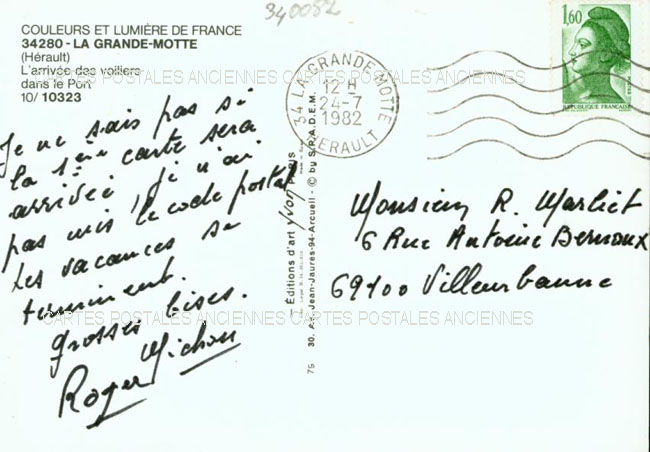 340082
COULEURS ET LUMIÈRE DE FRANCE
34280 - LA GRANDE-MOTTE
(Hérault)
L'arrivée des voiliers
dans le Port
10/ 10323
CARTES POSTALES ANCIENNES CARTES POSTALES ANCIENNES
Je ne sais pas si
la 1ère carte sera
arrivée, je n'ai
pas mis le code postal
Les vacances se
terminent.
Grosses bises.
Roger Michou
— Éditions d'art yvon PARIS
30, Av. Jean-Jaures-94-Arcueil - © by S.P.A.D.E.M.
75
34 LA GRANDE-MOTTE
12 H
24-7
1982
HERAULT
1,60
REPUBLIQUE FRANÇAISE
Monsieur R. Marliet
6 Rue Antoine Bernoux
69100 Villeurbanne
CARTES POSTALES ANCIENNES CARTES POSTALES ANCIENNES